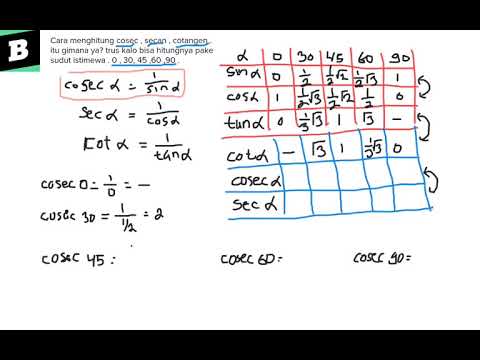 B
Cara menghitung cosec , secan , cotangen .
itu gimana ya? trus kalo bisa hitungnya pake
sudut istimewa . 0 , 30, 45 ,60 ,90 .
cosec α = 1/sin α
Sec α = 1/cos α
Cot α = 1/tan α
cosec 0 = 1/0 = —
cosec 30 = 1/1/2 = 2
cosec 45 =
cosec 60 =
cosec 90 =
α 0 30 45 60 90
sin α 0 1/2 1/2√2 1/2√3 1
cos α 1 1/2√3 1/2√2 1/2 0
tan α 0 1/3√3 1 √3 -
cot α — √3 1 1/3√3 0
cosec α
sec α